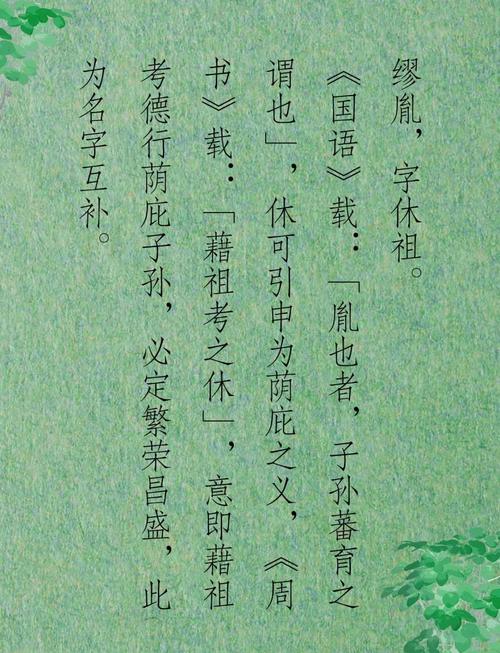 缪胤，字休祖。
《国语》载：「胤也者，子孙蕃育之
谓也」，休可引申为荫庇之义，《周
书》载：「藉祖考之休」，意即藉祖
考德行荫庇子孙，必定繁荣昌盛，此
为名字互补。